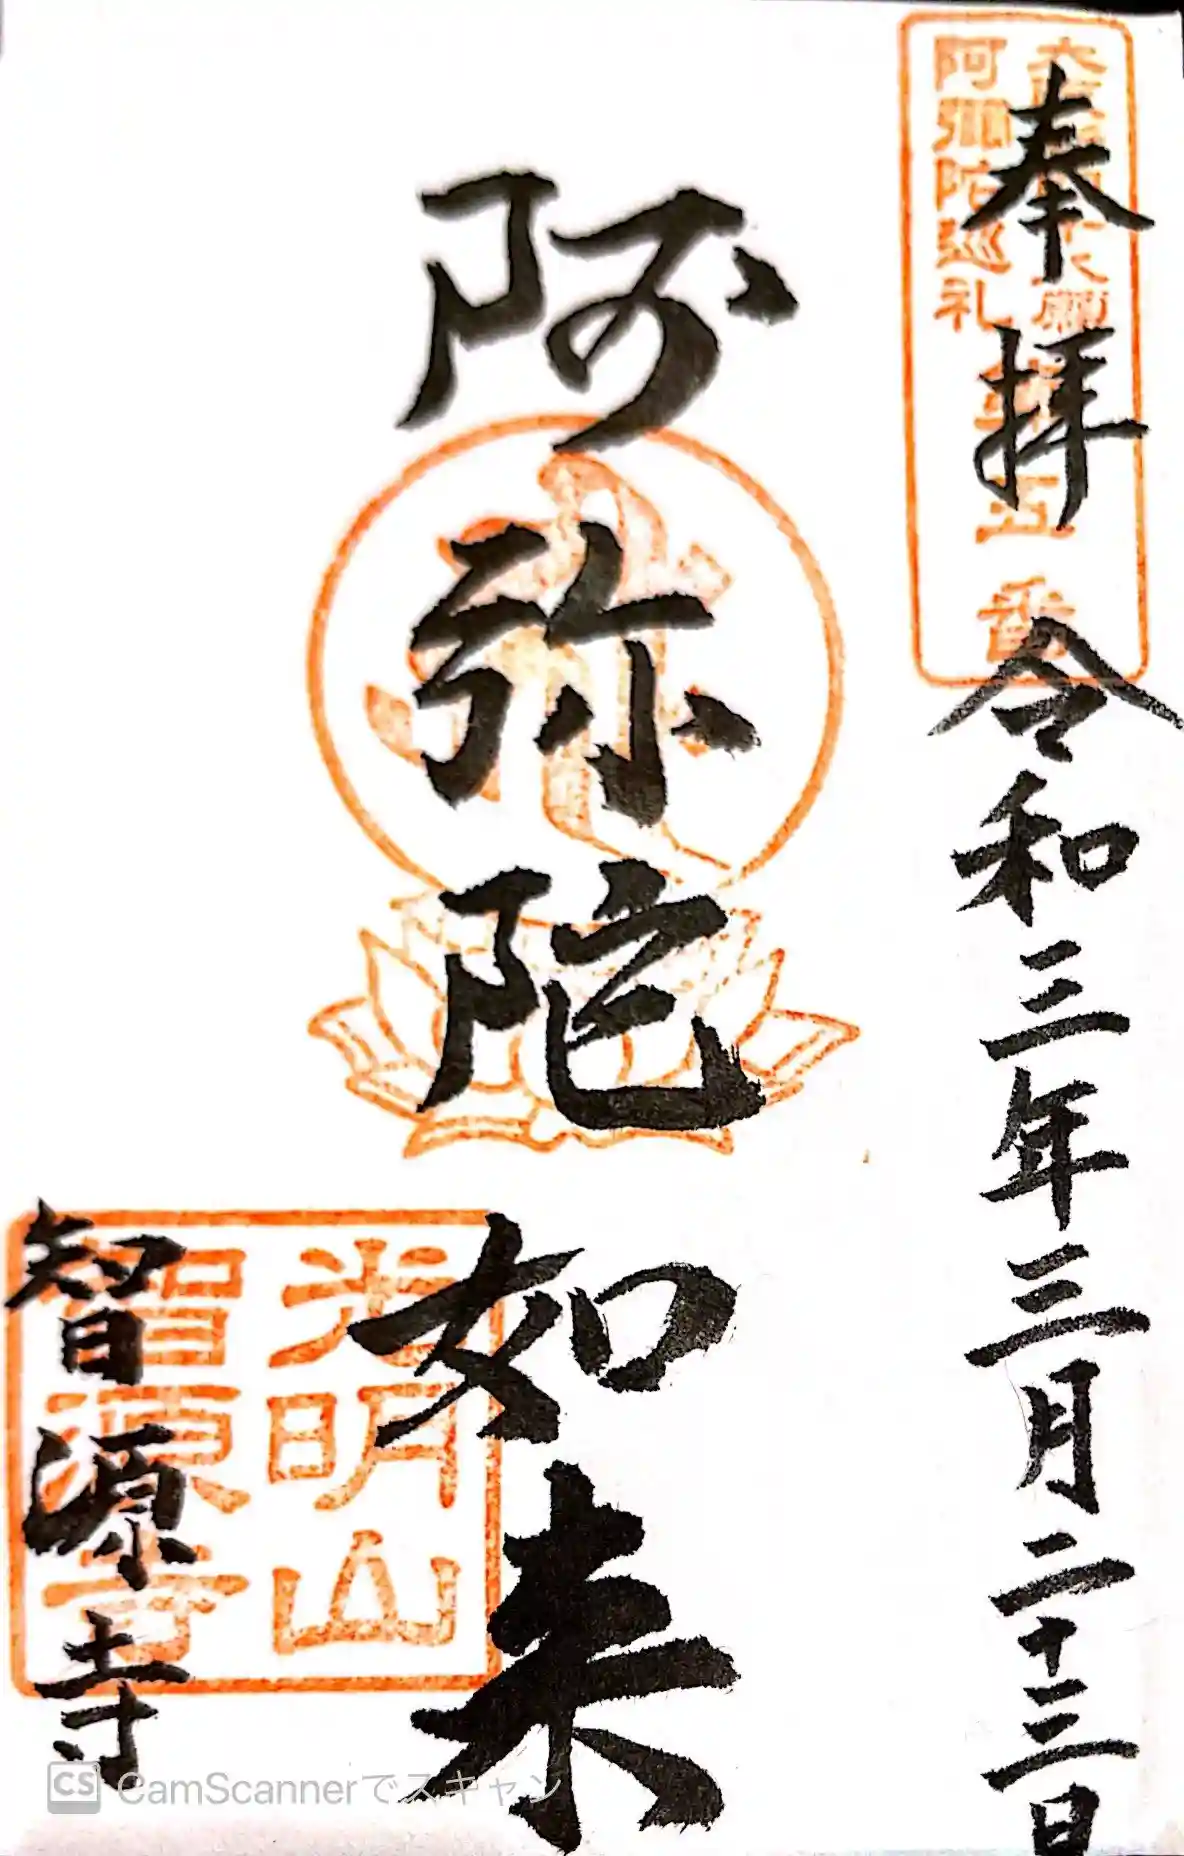 奉拝
令和三年三月二十三日
阿弥陀巡礼
五番
阿弥陀如来
光明山
智源寺
智源寺
CS CamScannerでスキャン